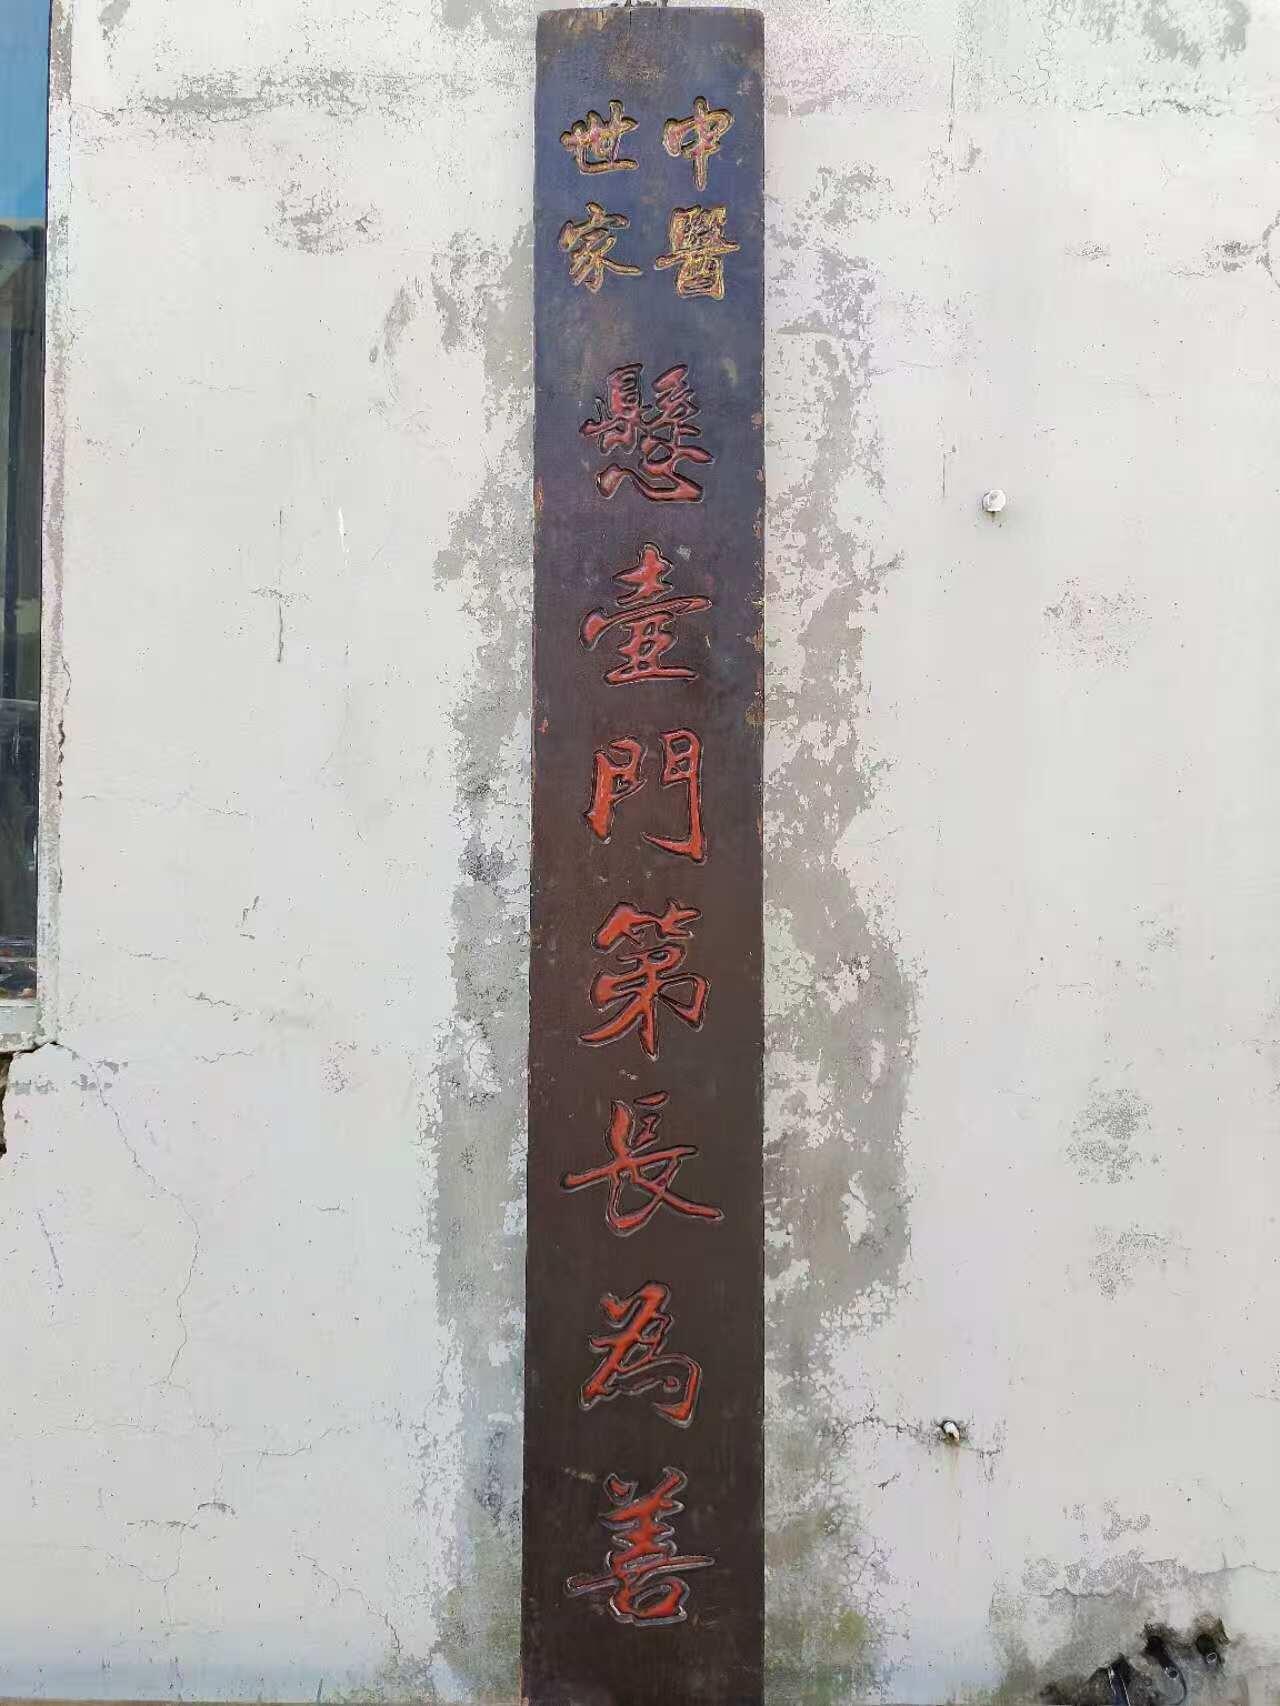 中醫
世家
懸壺門第長為善